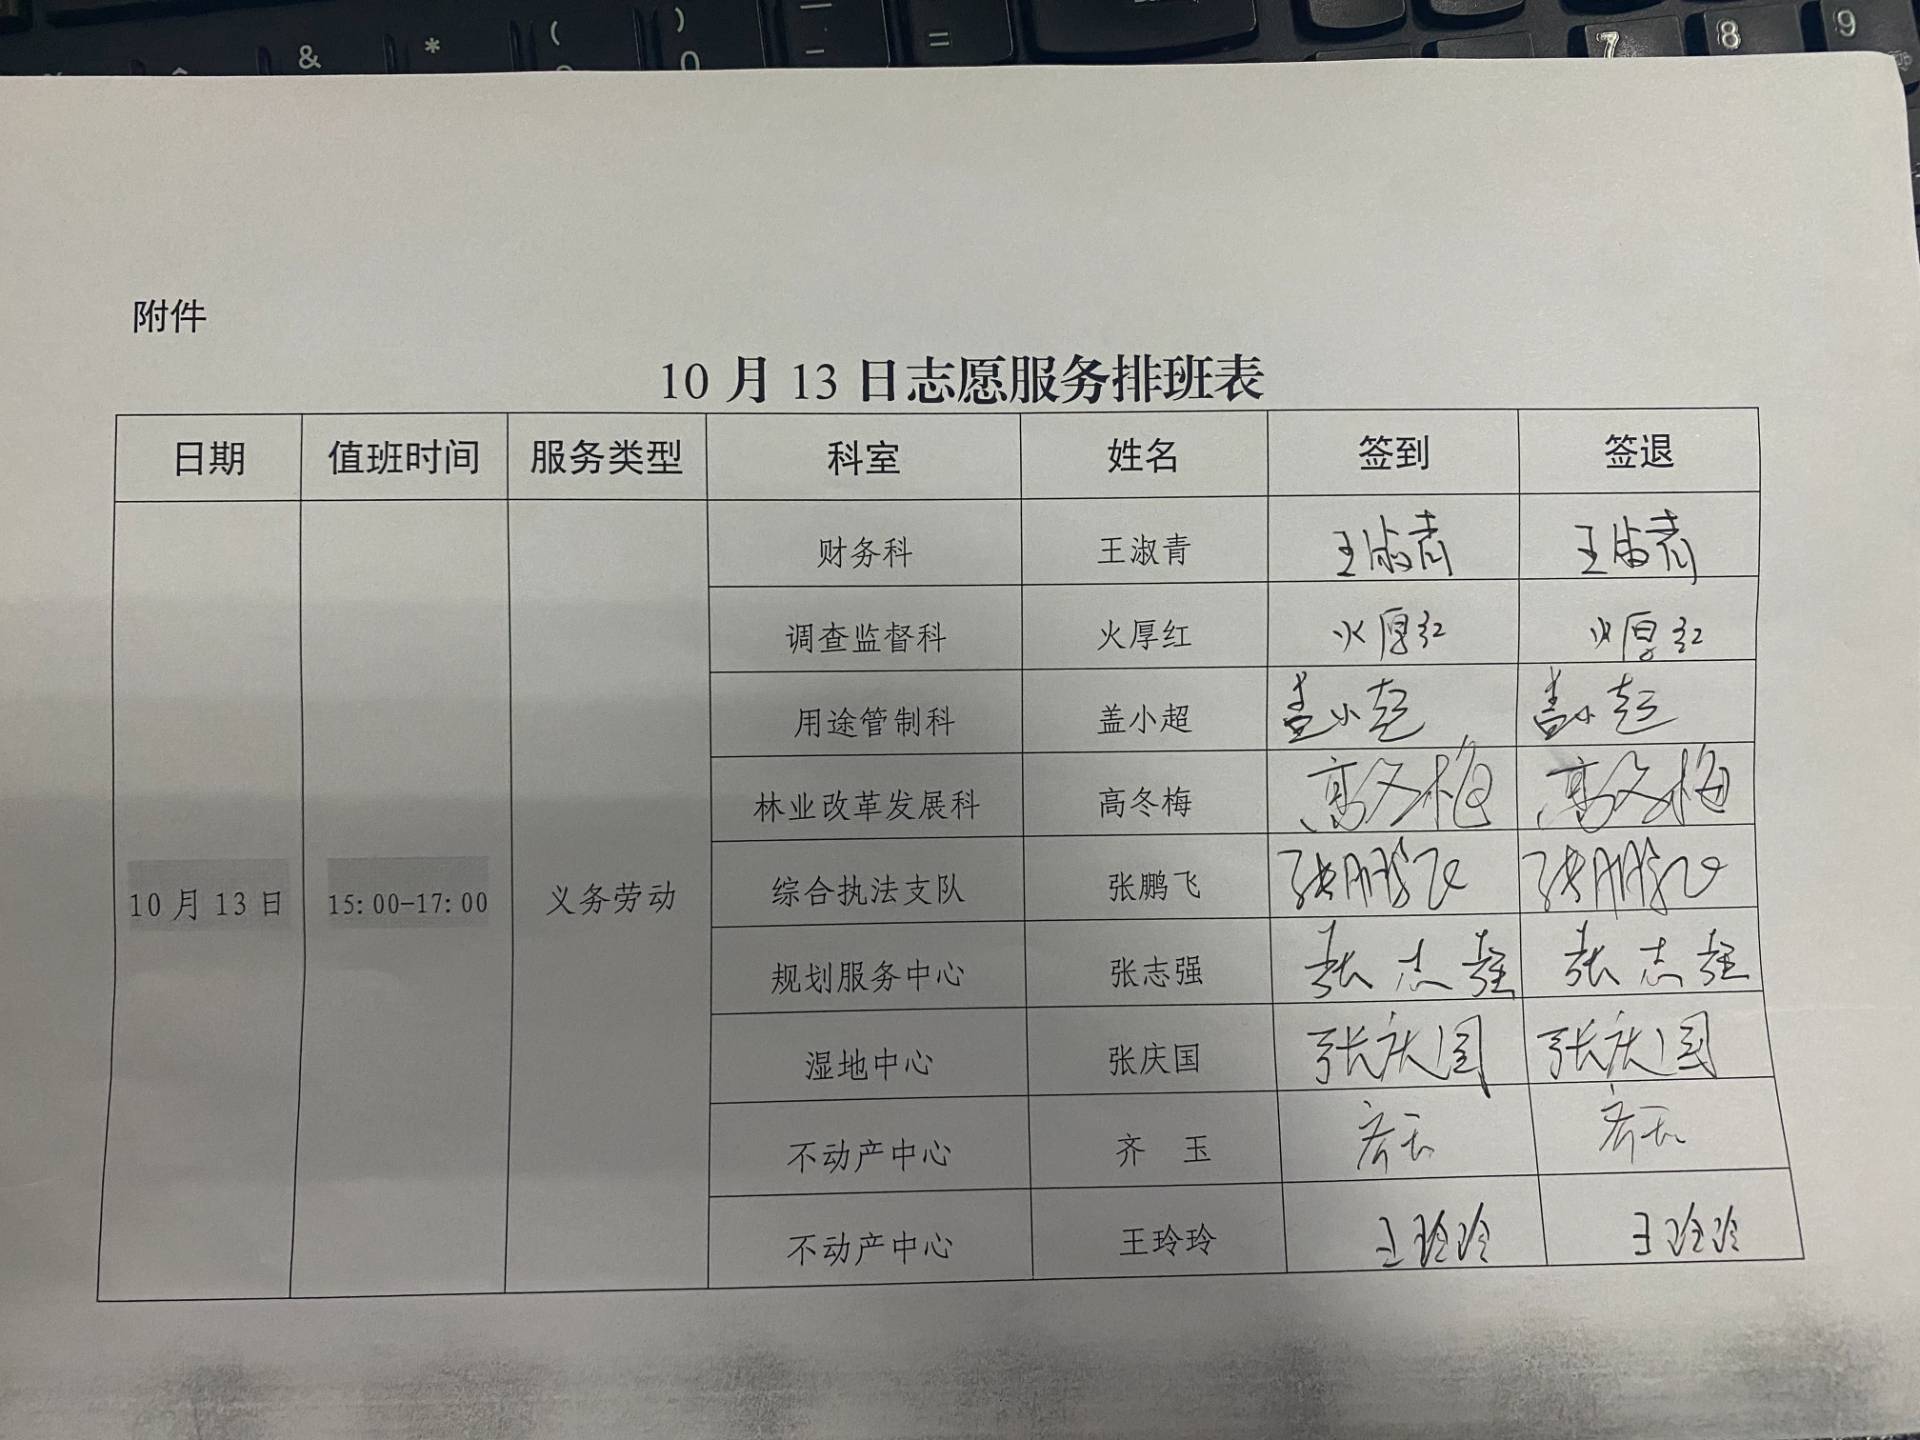 & * ( ) = 7 8 9
附件
10月13日志愿服务排班表
日期 值班时间 服务类型 科室 姓名 签到 签退
财务科 王淑青 王淑青 王淑青
调查监督科 火厚红 火厚红 火厚红
用途管制科 盖小超 盖小超 盖小超
林业改革发展科 高冬梅 高冬梅 高冬梅
10月13日 15:00-17:00 义务劳动 综合执法支队 张鹏飞 张鹏飞 张鹏飞
规划服务中心 张志强 张志强 张志强
湿地中心 张庆国 张庆国 张庆国
不动产中心 齐 玉 齐玉 齐玉
不动产中心 王玲玲 王玲玲 王玲玲